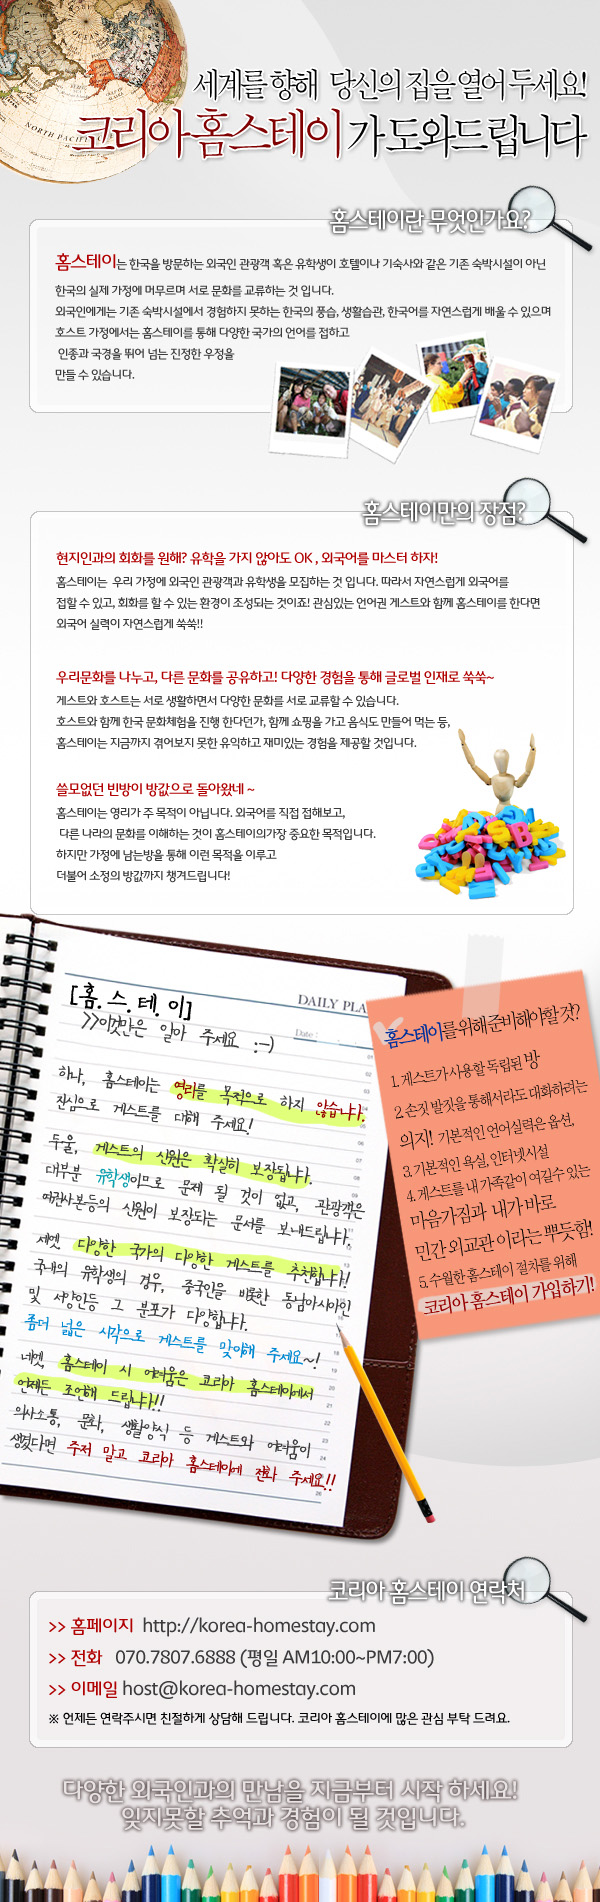 NORTH PACIFIC
세계를 향해 당신의 집을 열어 두세요!
코리아 홈스테이가 도와드립니다
홈스테이란 무엇인가요?
홈스테이는 한국을 방문하는 외국인 관광객 혹은 유학생이 호텔이나 기숙사와 같은 기존 숙박시설이 아닌
한국의 실제 가정에 머무르며 서로 문화를 교류하는 것 입니다.
외국인에게는 기존 숙박시설에서 경험하지 못하는 한국의 풍습, 생활습관, 한국어를 자연스럽게 배울 수 있으며
호스트 가정에서는 홈스테이를 통해 다양한 국가의 언어를 접하고
인종과 국경을 뛰어 넘는 진정한 우정을
만들 수 있습니다.
홈스테이만의 장점?
현지인과의 회화를 원해? 유학을 가지 않아도 OK , 외국어를 마스터 하자!
홈스테이는 우리 가정에 외국인 관광객과 유학생을 모집하는 것 입니다. 따라서 자연스럽게 외국어를
접할 수 있고, 회화를 할 수 있는 환경이 조성되는 것이죠! 관심있는 언어권 게스트와 함께 홈스테이를 한다면
외국어 실력이 자연스럽게 쑥쑥!!
우리문화를 나누고, 다른 문화를 공유하고! 다양한 경험을 통해 글로벌 인재로 쑥쑥~
게스트와 호스트는 서로 생활하면서 다양한 문화를 서로 교류할 수 있습니다.
호스트와 함께 한국 문화체험을 진행 한다던가, 함께 쇼핑을 가고 음식도 만들어 먹는 등,
홈스테이는 지금까지 겪어보지 못한 유익하고 재미있는 경험을 제공할 것입니다.
쓸모없던 빈방이 방값으로 돌아왔네 ~
홈스테이는 영리가 주 목적이 아닙니다. 외국어를 직접 접해보고,
다른 나라의 문화를 이해하는 것이 홈스테이의가장 중요한 목적입니다.
하지만 가정에 남는방을 통해 이런 목적을 이루고
더불어 소정의 방값까지 챙겨드립니다!
DAILY PLA
Date :
[홈.스.테.이]
>>이것만은 알아 주세요 :-)
하나, 홈스테이는 영리를 목적으로 하지 않습니다.
진심으로 게스트를 대해 주세요!
두울, 게스트의 신원은 확실히 보장됩니다.
대부분 유학생이므로 문제 될 것이 없고, 관광객은
여권사본등의 신원이 보장되는 문서를 보내드립니다.
세엣, 다양한 국가의 다양한 게스트를 추천합니다!!
국내의 유학생의 경우, 중국인을 비롯한 동남아시아인
및 서양인등 그 분포가 다양합니다.
좀더 넓은 시각으로 게스트를 맞이해 주세요~!
네엣, 홈스테이 시 어려움은 코리아 홈스테이에서
언제든 조언해 드립니다!!
의사소통, 문화, 생활양식 등 게스트와 어려움이
생겼다면 주저 말고 코리아 홈스테이에 전화 주세요!!
홈스테이를 위해 준비해야할 것?
1. 게스트가 사용할 독립된 방
2. 손짓 발짓을 통해서라도 대화하려는
의지! 기본적인 언어실력은 옵션,
3. 기본적인 욕실, 인터넷시설
4. 게스트를 내 가족같이 여길수 있는
마음가짐과 내가 바로
민간 외교관 이라는 뿌듯함!
5. 수월한 홈스테이 절차를 위해
코리아 홈스테이 가입하기!
코리아 홈스테이 연락처
>> 홈페이지 http://korea-homestay.com
>> 전화 070.7807.6888 (평일 AM10:00~PM7:00)
>> 이메일 host@korea-homestay.com
※ 언제든 연락주시면 친절하게 상담해 드립니다. 코리아 홈스테이에 많은 관심 부탁 드려요.
다양한 외국인과의 만남을 지금부터 시작 하세요!
잊지못할 추억과 경험이 될 것입니다.